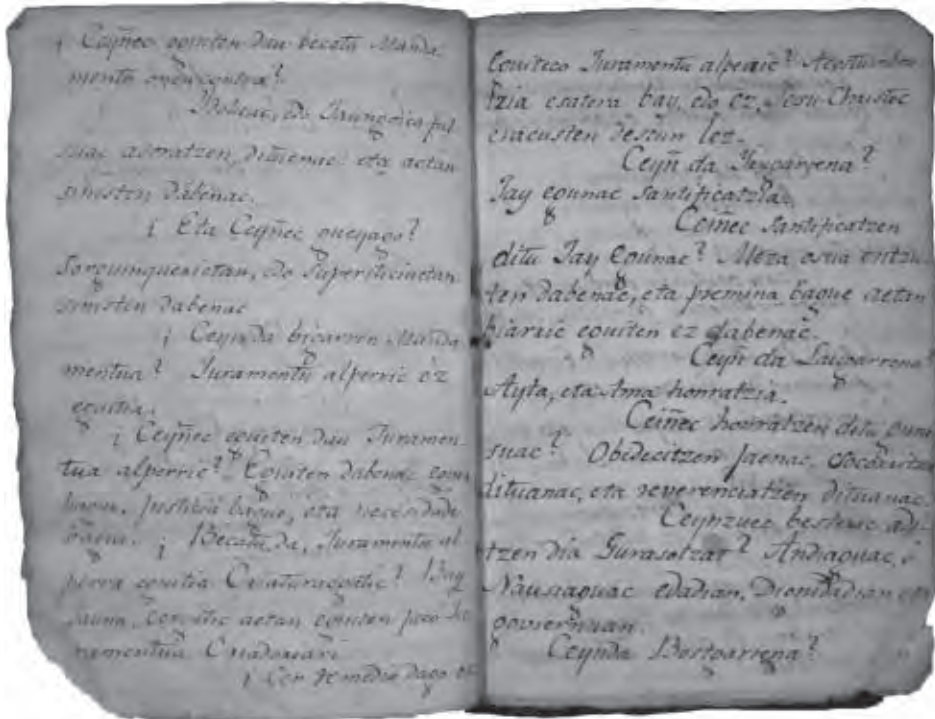 ¿ Ceyñec eguiten dau becatu Manda
mentu onen contra?
Idoluac, edo Jaungoico fal
suac adoratzen dituenac: eta aetan
sinisten dabenac.
¿ Eta Ceyñec gueyago?
Sorguinquerietan, edo Supersticinetan
sinisten dabenac
¿ Ceynda bigarren Manda
mentua? Juramentu alperric ez
eguitia.
¿ Ceyñec eguiten dau Juramen
tua alperric? Eguiten dabenac
bague, justicia bague, eta necesidade
bague. ¿ Becatu da, Juramentu al
perra eguitia Criaturacgatic? Bay
jauna, Cergatic aetan eguiten
Criadoriari
¿ Cer remedio dago ez
Eguiteco Juramentu alperric? Acostumbra
tzia esatera bay, edo ez, Jesu-Christoc
eracusten descun lez.
Ceyñ da Yrugarrena?
Jay egunac Santificatzia.
Ceiñec Santificatzen
ditu Jay Egunac? Meza osua entzu
ten dabenac, eta premina bague aetan
biarric eguiten ez dabenac.
Ceyn da Laugarrena?
Ayta, eta Ama honratzia.
Ceiñec honratzen ditu gura
suac? Obedecitzen jaenac, Socorritzen
dituanac, eta reverenciatzen dituanac.
Ceynzuec besteric adi
tzen dia Gurasotzat? Andiaguac, ó
Nausiaguac edadian, Dignidadian eta
goviernuan.
Ceynda Bostgarrena?